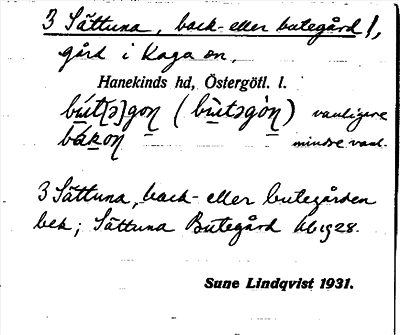 3 Sättuna, back- eller butegård 1,
gård i Kaga sn,
Hanekinds hd, Östergötl. l.
vanligare
mindre vanl.
3 Sättuna, back- eller butegården
bek; Sättuna Butegård Jb 1928.
Sune Lindqvist 1931.